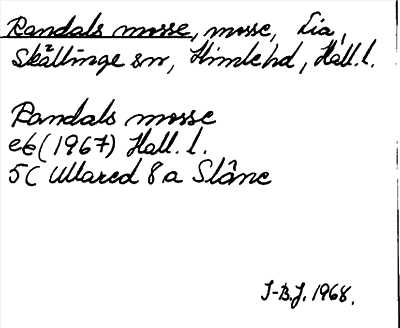 Randals mosse, mosse, Lia,
Skällinge sn, Himle hd, Hall. l.
Randals mosse
ek (1967) Hall. l.
5C Ullared 8a Slâne
J-B.J. 1968.